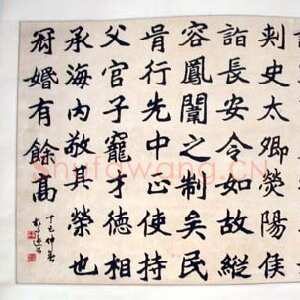 刺史太卿熒陽侯
詣長安令如故縱
容鳳闈之制矣民
行先中正使持
父官子寵才德相
承海內敬其榮也
冠婚有餘高
丁巳仲春
shufawang.cn